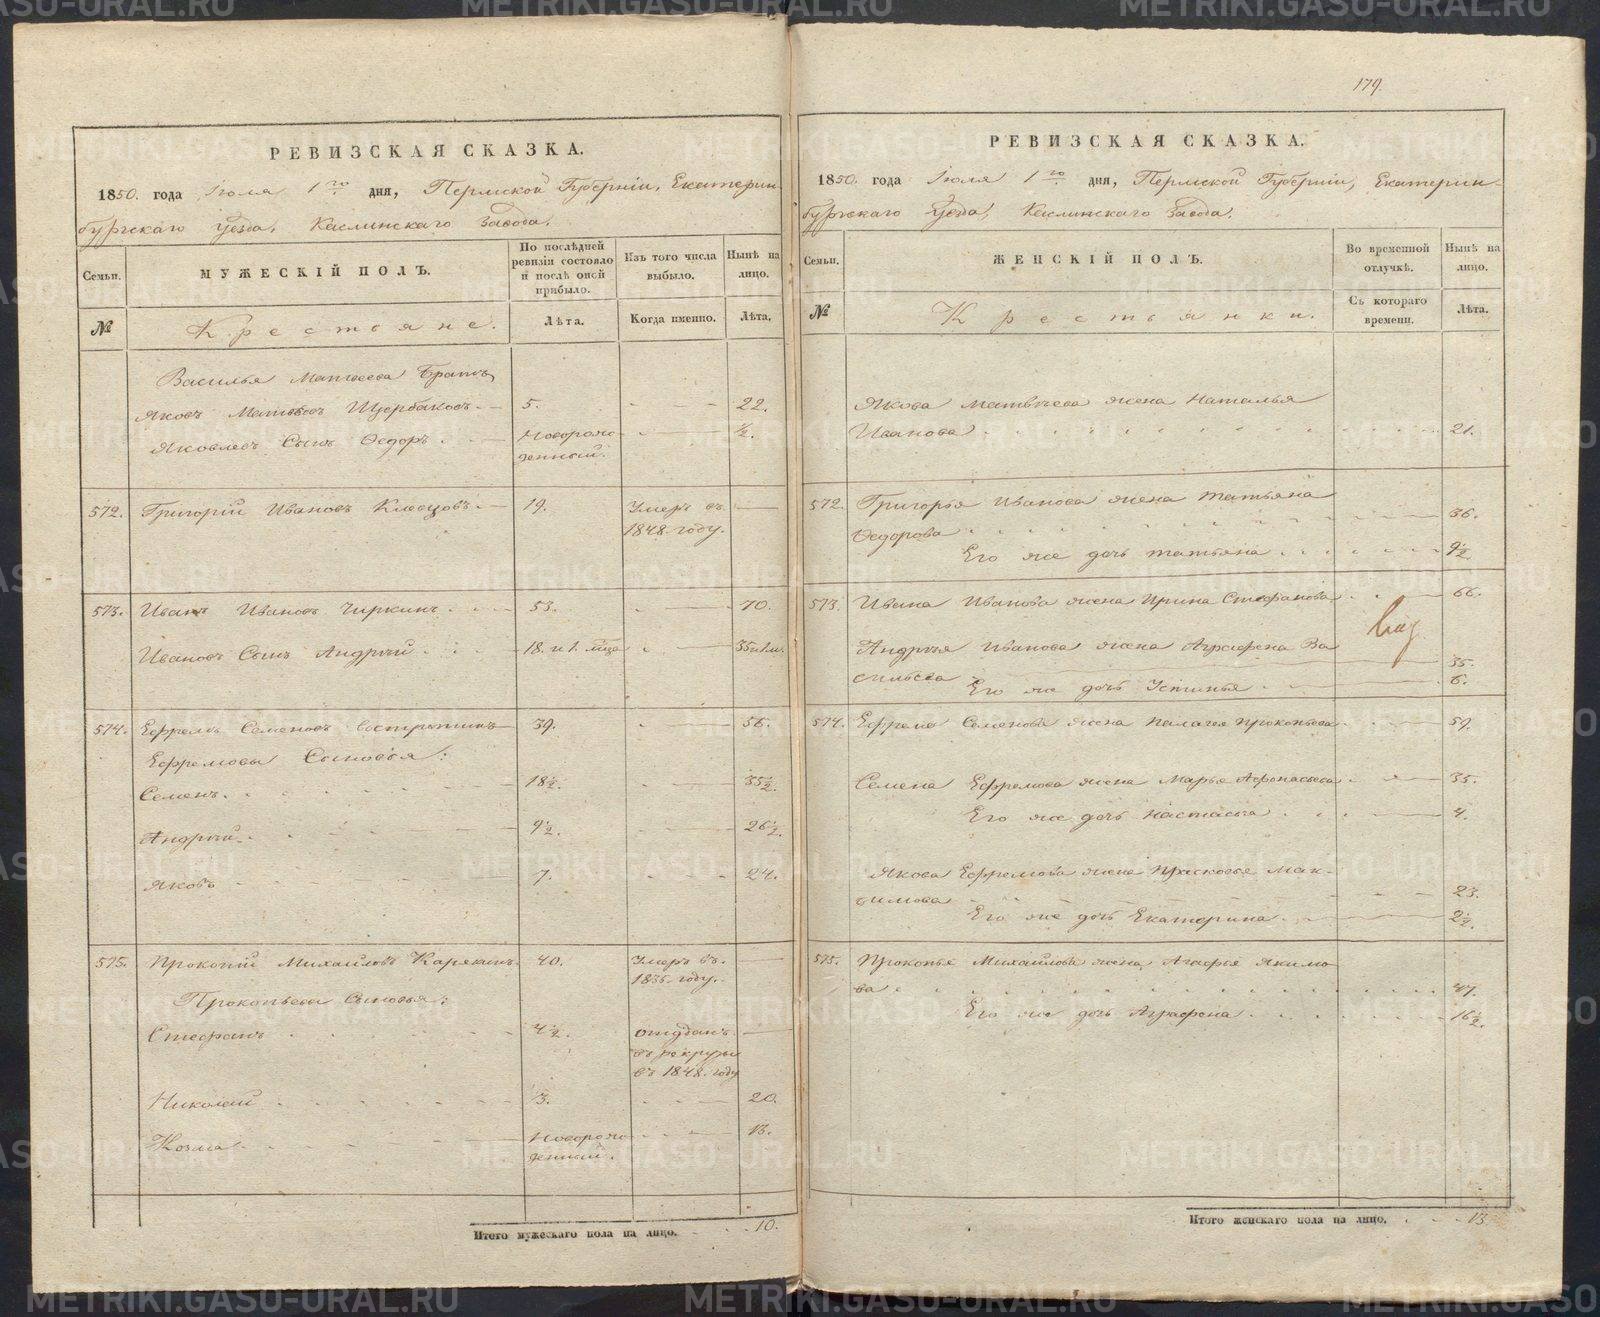 179.
РЕВИЗСКАЯ СКАЗКА.
1850. года Іюля 1го дня, Пермской Губерніи, Екатерин
бургскаго Уезда, Каслинскаго Завода.
Семьи.
МУЖЕСКІЙ ПОЛЪ.
По послѣдней ревизіи состояло и послѣ оной прибыло.
Изъ того числа выбыло.
Нынѣ на лицо.
№
Крестьяне.
Лѣта.
Когда именно.
Лѣта.
Василья Матвеева Братъ
Яковъ Матвеевъ Щербаковъ 5. 22.
Яковлевъ Сынъ Ѳедоръ Новорож- ½.
денный.
572. Григорій Ивановъ Клевцовъ 19. Умеръ въ
1848. году.
573. Иванъ Ивановъ Чиркинъ 53. 70.
Ивановъ Сынъ Андрей 18. и 1. м-ца 35 и 1 м.
574. Ефремъ Семеновъ 39. 56.
Ефремовы Сыновья:
Семенъ. 18½. 35½.
Андрей 9½. 26½.
Яковъ 7. 24.
575. Прокопій Михайловъ Карякинъ 40. Умеръ въ.
1835. году.
Прокопьевы Сыновья:
Стефанъ 4½. отданъ
въ рекруты
въ 1848. году
Николай 3. 20.
Козма Новорож- 13.
денный.
Итого мужескаго пола на лицо. 10.
РЕВИЗСКАЯ СКАЗКА.
1850. года Іюля 1го дня, Пермской Губерніи, Екатерин-
бургскаго Уезда, Каслинскаго Завода.
Семьи.
ЖЕНСКІЙ ПОЛЪ.
Во временной отлучкѣ.
Нынѣ на лицо.
№
Крестьянки.
Съ котораго времени.
Лѣта.
Якова Матвѣева жена Наталья
Иванова 21.
572. Григорья Иванова жена Татьяна
Ѳедорова 36.
Его же дочь Татьяна 9½
573. Ивана Иванова жена Ирина Стефанова 66.
Андрея Иванова жена Аграфена Ва
сильева 35.
Его же дочь Устинья 6.
574. Ефрема Семенова жена Палагея Прокопьева 59.
Семена Ефремова жена Марья Афонасьева 35.
Его же дочь Настасья 4.
Якова Ефремова жена Прасковья Мак-
симова 23.
Его же дочь Екатерина 2½.
575. Прокопья Михайлова жена Агафья Якимо
ва 47.
Его же дочь Аграфена 16½.
Итого женскаго пола на лицо. 13
METRIKI.GASO-URAL.RU